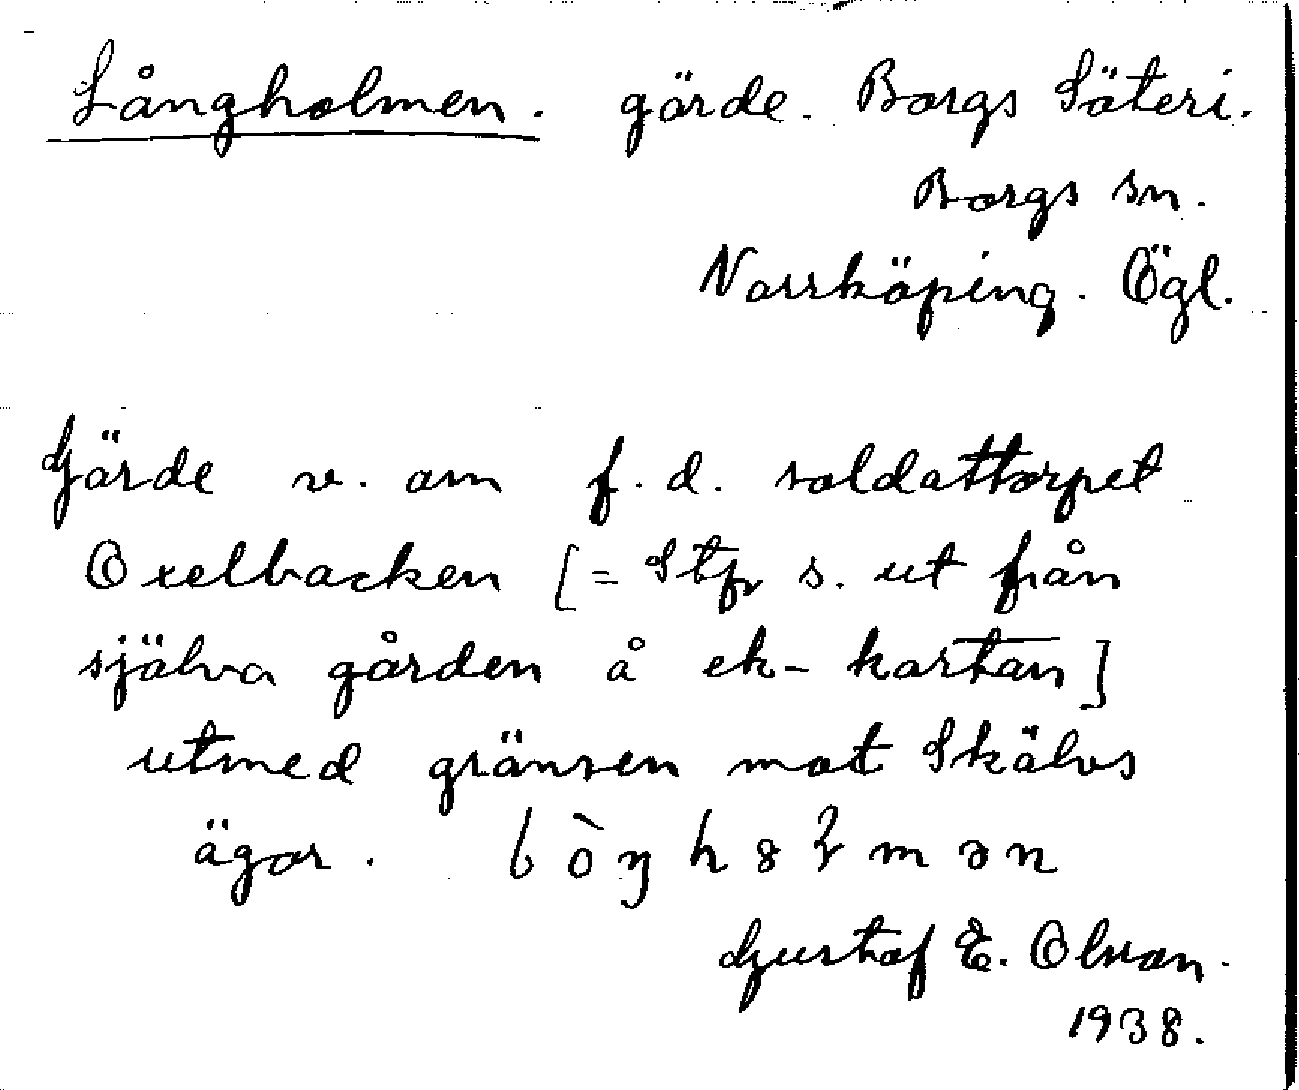 Långholmen. gärde. Borgs Säteri.
Borgs sn.
Norrköping. Ögl.
Gärde v. om f.d. soldattorpet
Oxelbacken [= Stfr s. ut från
själva gården å ek-kartan]
utmed gränsen mot Skälvs
ägor.
Gustaf E. Olson.
1938.